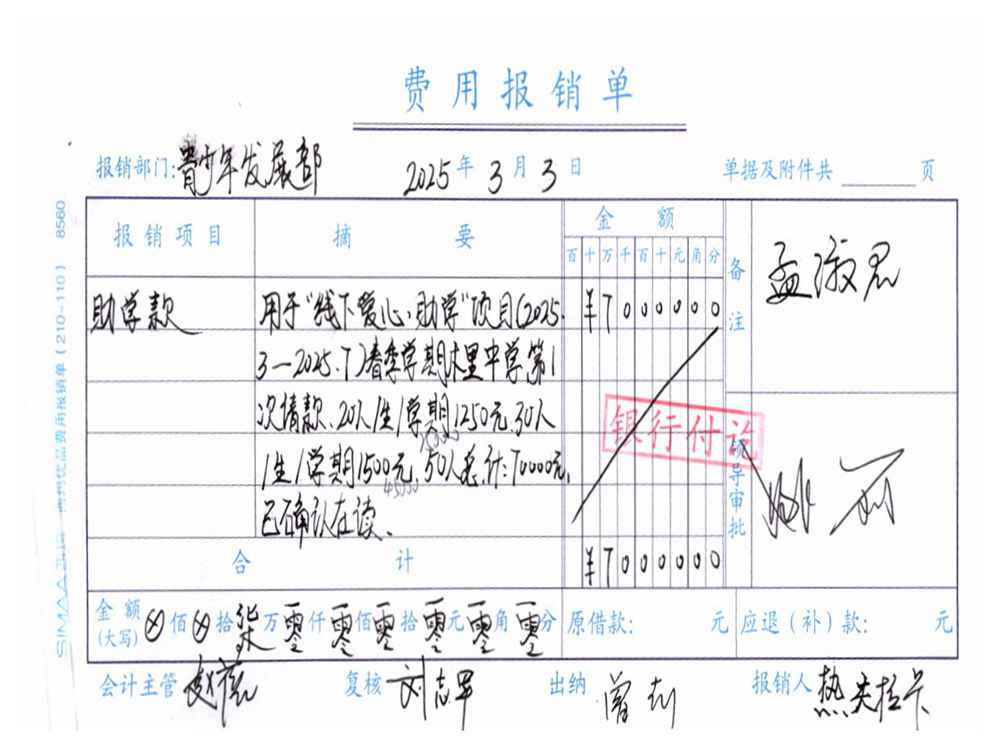 费用报销单
报销部门:青少年发展部 2025年3月3日 单据及附件共 页
报销项目 摘要 金额 备注
百十万千百十元角分
助学款 用于"线下爱心助学"项目(2025. ¥7000000
3—2025.7)春季学期木里中学第1
次请款、20人/生/学期1250元,30人
/生/学期1500元,50人总计:70000元,
已确认在读、
25000
45000
孟淑君
银行付讫
领导审批
合计 ¥7000000
金额(大写) ⊗佰⊗拾柒万零仟零佰零拾零元零角零分 原借款: 元 应退(补)款: 元
会计主管 复核 刘志军 出纳 曾利 报销人 热夫拉卡
(210-110) 8560